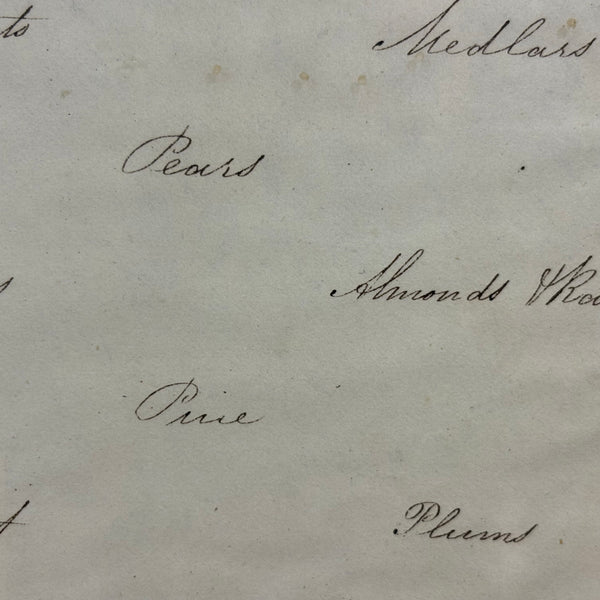 Medlars
Pears
Almonds &
Pine
Plums